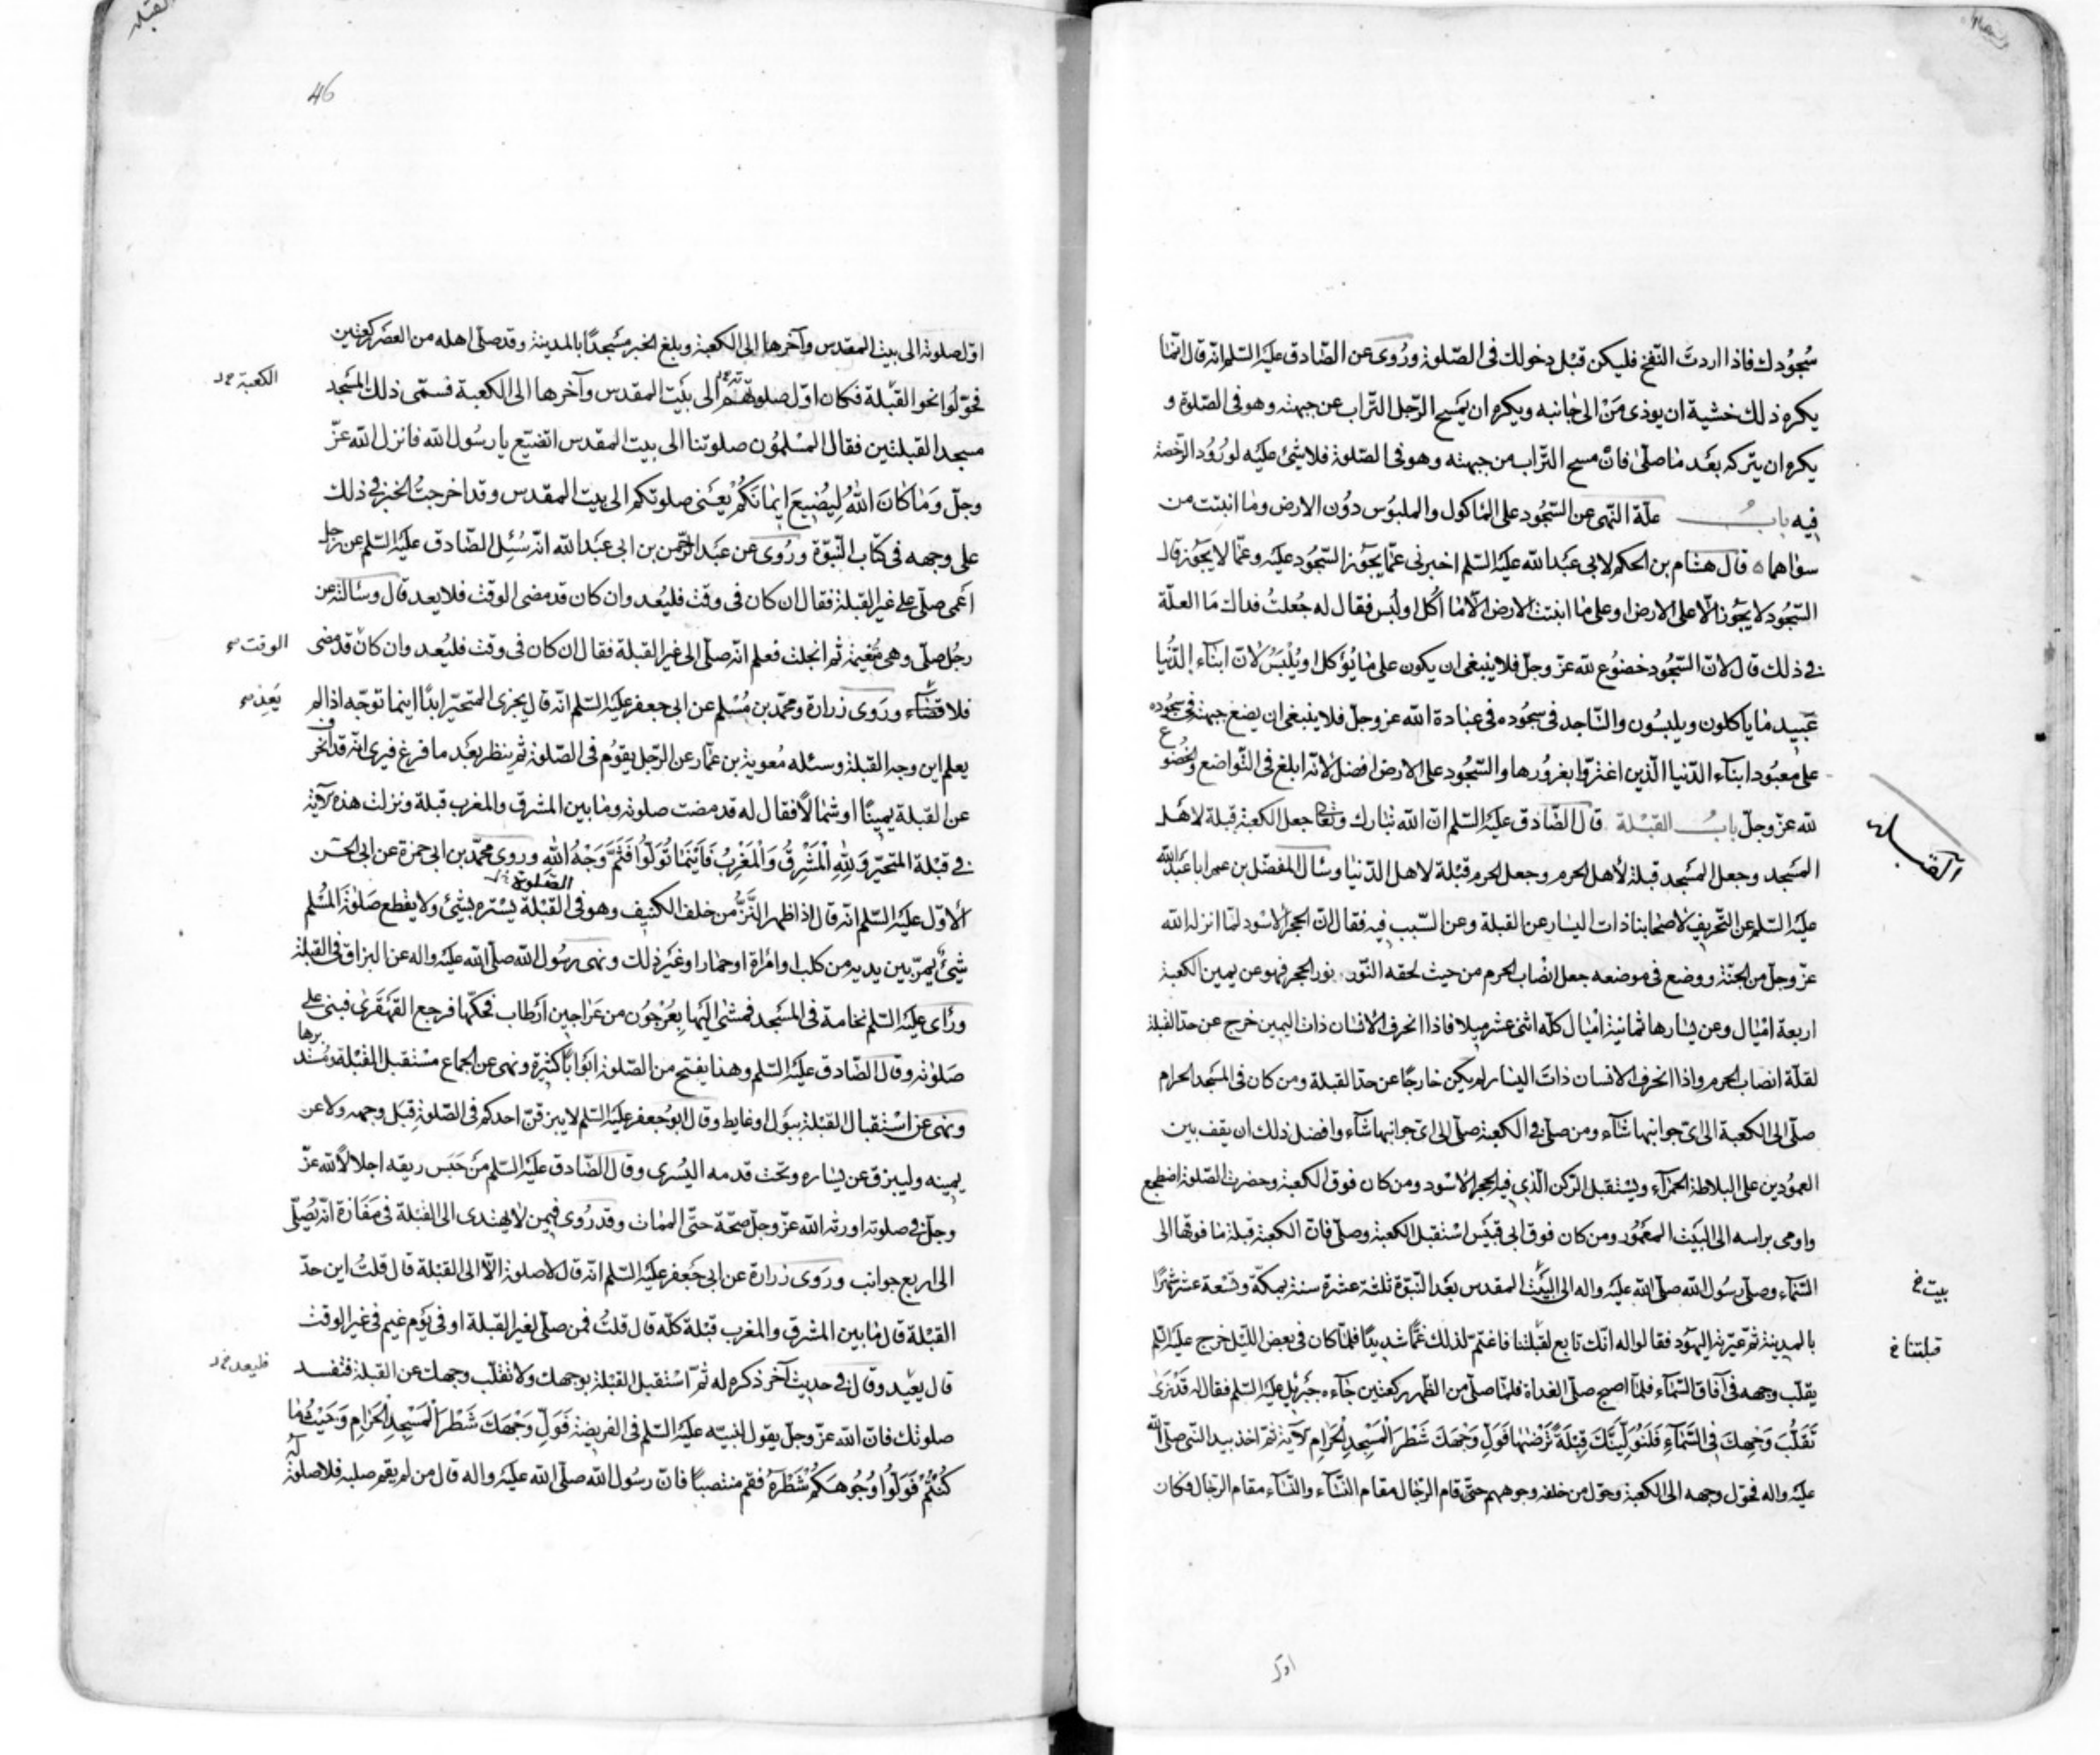 سجودك فاذا اردت النفخ فليكن قبل دخولك فى الصلوة وروى عن الصادق عليه السلم انه قال انما
يكره ذلك خشية ان يوذى من الى جانبه ويكره ان يمسح الرجل التراب عن جبهته وهو فى الصلوة و
يكره ان يتركه بعد ما صلى فان مسح التراب من جبهته وهو فى الصلوة فلا شئ عليه لورود الرخصة
فيه باب علة النهى عن السجود على الماكول والملبوس دون الارض وما انبتت من
سواهما قال هشام بن الحكم لابى عبد الله عليه السلم اخبرنى عما يجوز السجود عليه وعما لا يجوز قال
السجود لا يجوز الا على الارض او على ما انبتت الارض الا ما اكل او لبس فقال له جعلت فداك ما العلة
فى ذلك قال لان السجود خضوع لله عز وجل فلا ينبغى ان يكون على ما يؤكل او يلبس لان ابناء الدنيا
عبيد ما ياكلون ويلبسون والساجد فى سجوده فى عبادة الله عز وجل فلا ينبغى ان يضع جبهته فى سجوده
على معبود ابناء الدنيا الذين اغتروا بغرورها والسجود على الارض افضل لانه ابلغ فى التواضع والخضوع
لله عز وجل باب القبلة قال الصادق عليه السلم ان الله تبارك وتعالى جعل الكعبة قبلة لاهل
القبلة
المسجد وجعل المسجد قبلة لأهل الحرم وجعل الحرم قبلة لاهل الدنيا وسال المفضل بن عمر ابا عبد الله
عليه السلم عن التحريف لاصحابنا ذات اليسار عن القبلة وعن السبب فيه فقال ان الحجر الاسود لما انزله الله
عز وجل من الجنة ووضع فى موضعه جعل انصاب الحرم من حيث لحقه النور نور الحجر فهو عن يمين الكعبة
اربعة اميال وعن يسارها ثمانية اميال كله اثنى عشر ميلا فاذا انحرف الانسان ذات اليمين خرج عن حد القبلة
لقلة انصاب الحرم واذا انحرف الانسان ذات اليسار لم يكن خارجا عن حد القبلة ومن كان فى المسجد الحرام
صلى الى الكعبة الى اى جوانبها شاء ومن صلى فى الكعبة صلى الى اى جوانبها شاء وافضل ذلك ان يقف بين
العمودين على البلاطة الحمراء ويستقبل الركن الذى فيه الحجر الاسود ومن كان فوق الكعبة وحضرت الصلوة اضطجع
واومى براسه الى البيت المعمور ومن كان فوق ابى قبيس استقبل الكعبة وصلى فان الكعبة قبلة ما فوقها الى
السماء وصلى رسول الله صلى الله عليه واله الى البيت المقدس بعد النبوة ثلثة عشرة سنة بمكة وتسعة عشر شهرا
بيت خ
بالمدينة ثم عيرته اليهود فقالوا له انك تابع لقبلتنا فاغتم لذلك غما شديدا فلما كان فى بعض الليل خرج عليه السلم
قبلتنا خ
يقلب وجهه فى آفاق السماء فلما اصبح صلى الغداة فلما صلى من الظهر ركعتين جاءه جبرئيل عليه السلم فقال له قد نرى
تقلب وجهك فى السماء فلنولينك قبلة ترضيها فول وجهك شطر المسجد الحرام الآية ثم اخذ بيد النبى صلى الله
عليه واله فحول وجهه الى الكعبة وحول من خلفه وجوههم حتى قام الرجال مقام النساء والنساء مقام الرجال فكان
اول
القبلة
46
اول صلوته الى بيت المقدس وآخرها الى الكعبة وبلغ الخبر مسجدا بالمدينة وقد صلى اهله من العصر ركعتين
فحولوا نحو القبلة فكان اول صلوتهم الى بيت المقدس وآخرها الى الكعبة فسمى ذلك المسجد
الكعبة
مسجد القبلتين فقال المسلمون صلوتنا الى بيت المقدس اتضيع يا رسول الله فانزل الله عز
وجل وما كان الله ليضيع ايمانكم يعنى صلوتكم الى بيت المقدس وقد اخرجت الخبر فى ذلك
على وجهه فى كتاب النبوة وروى عن عبد الرحمن بن ابى عبد الله انه سئل الصادق عليه السلم عن رجل
اعمى صلى على غير القبلة فقال ان كان فى وقت فليعد وان كان قد مضى الوقت فلا يعد قال وسالته عن
رجل صلى وهى مغيمة ثم انجلت فعلم انه صلى الى غير القبلة فقال ان كان فى وقت فليعد وان كان قد مضى
الوقت
فلا قضاء وروى زرارة ومحمد بن مسلم عن ابى جعفر عليه السلم انه قال يجزى المتحير ابدا اينما توجه اذا لم
يعد
يعلم اين وجه القبلة وسئله معوية بن عمار عن الرجل يقوم فى الصلوة ثم ينظر بعد ما فرغ فيرى انه قد انحرف
عن القبلة يمينا او شمالا فقال له قد مضت صلوته وما بين المشرق والمغرب قبلة ونزلت هذه الآية
فى قبلة المتحير ولله المشرق والمغرب فاينما تولوا فثم وجه الله وروى محمد بن ابى حمزة عن ابى الحسن
الصلوة
الأول عليه السلم انه قال اذا ظهر النز من خلف الكنيف وهو فى القبلة يستره بشئ ولا يقطع صلوة المسلم
شئ يمر بين يديه من كلب او امراة او حمار او غير ذلك ونهى رسول الله صلى الله عليه واله عن البزاق فى القبلة
وراى عليه السلم نخامة فى المسجد فمشى اليها بعرجون من عراجين ارطاب فحكها فرجع القهقرى فبنى على
صلوته وقال الصادق عليه السلم وهذا يفتح من الصلوة ابوابا كثيرة ونهى عن الجماع مستقبل القبلة ومستدبرها
ونهى عن استقبال القبلة ببول او غايط وقال ابو جعفر عليه السلم لا يبزقن احدكم فى الصلوة قبل وجهه ولا عن
يمينه وليبزق عن يساره وتحت قدمه اليسرى وقال الصادق عليه السلم من حبس ريقه اجلالا لله عز
وجل فى صلوته اورثه الله عز وجل صحة حتى الممات وقد روى فيمن لا يهتدى الى القبلة فى مفازة انه يصلى
الى اربع جوانب وروى زرارة عن ابى جعفر عليه السلم انه قال لا صلوة الا الى القبلة قال قلت اين حد
القبلة قال ما بين المشرق والمغرب قبلة كله قال قلت فمن صلى لغير القبلة او فى يوم غيم فى غير الوقت
قال يعيد وقال فى حديث آخر ذكره له ثم استقبل القبلة بوجهك ولا تقلب وجهك عن القبلة فتفسد
فليعد
صلوتك فان الله عز وجل يقول لنبيه عليه السلم فى الفريضة فول وجهك شطر المسجد الحرام وحيث ما
كنتم فولوا وجوهكم شطره فقم منتصبا فان رسول الله صلى الله عليه واله قال من لم يقم صلبه فلا صلوة له